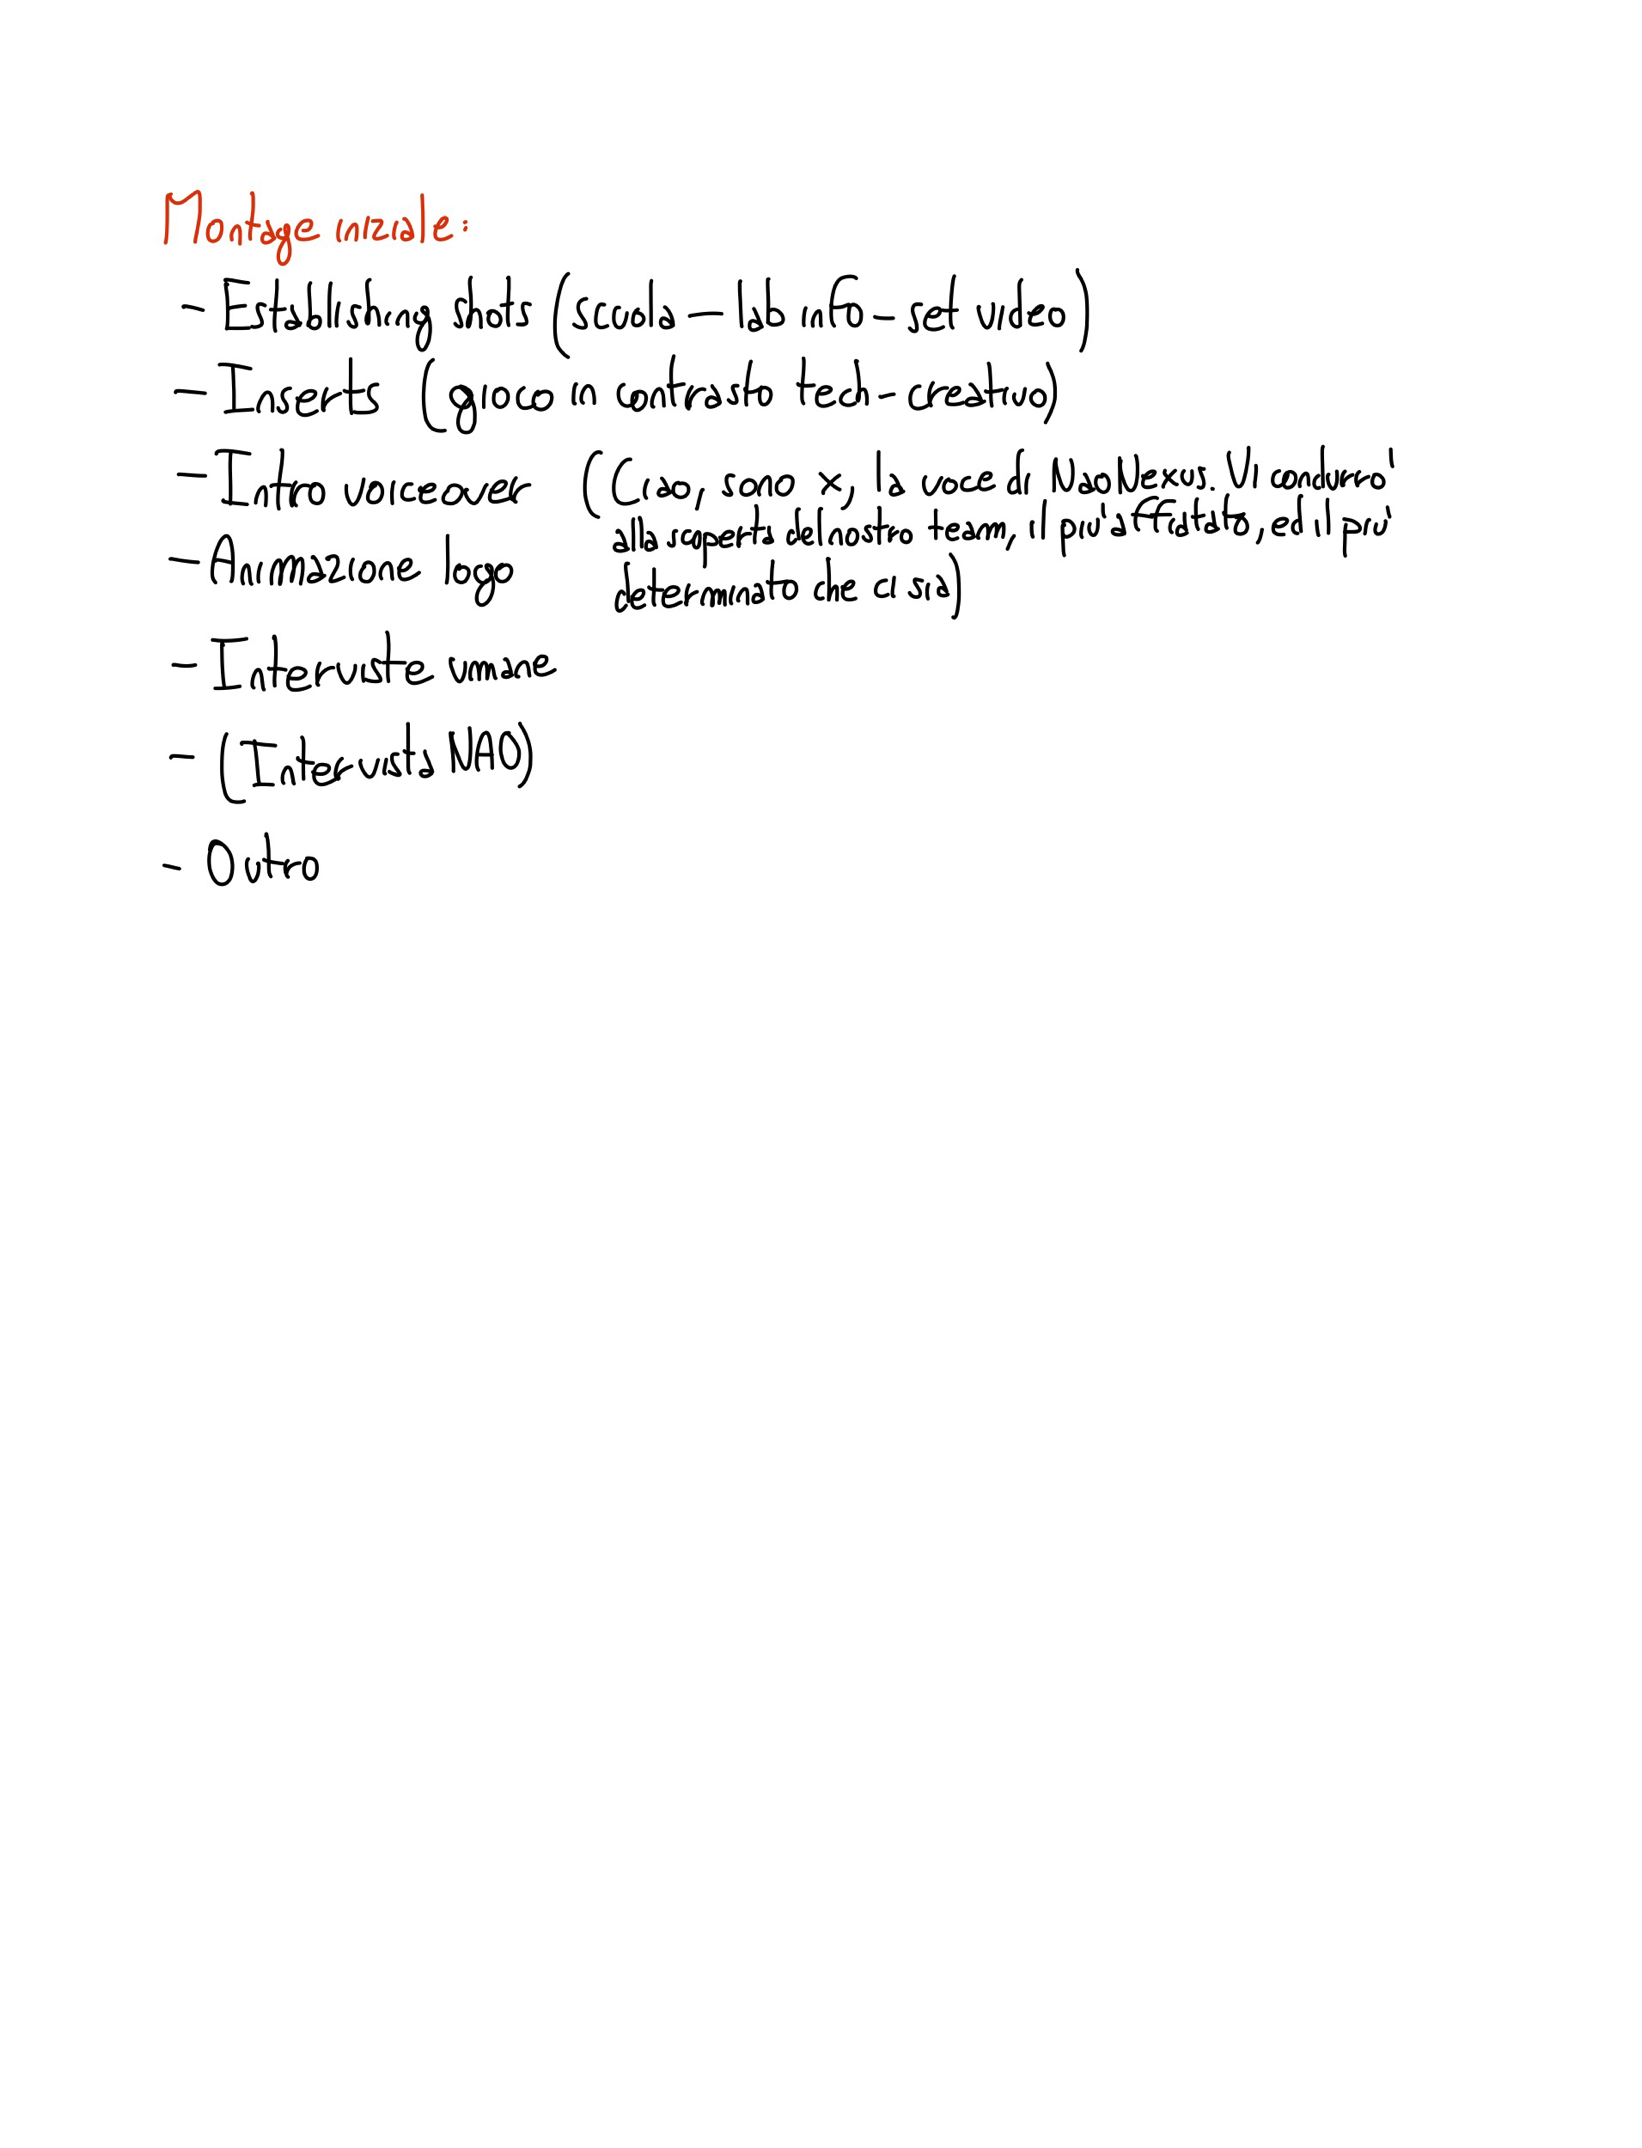 Montage iniziale:
- Establishing shots (scuola - lab info - set video)
- Inserts (gioco in contrasto tech-creativo)
- Intro voiceover (Ciao, sono x, la voce di NaoNexus. Vi condurro'
alla scoperta del nostro team, il piu' affiatato, ed il piu'
- Animazione logo
determinato che ci sia)
- Interviste umane
- (Intervista NAO)
- Outro